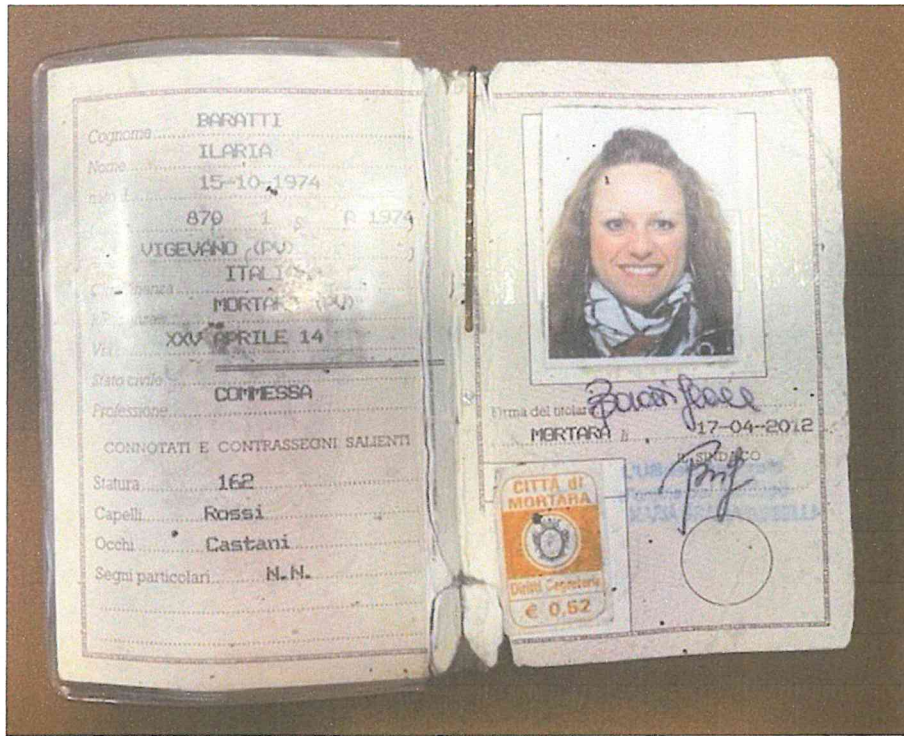 Cognome BARATTI
Nome ILARIA
nato il 15-10-1974
870 1 S A 1974
VIGEVANO (PV) )
Cittadinanza ITALIANA
Residenza MORTARA (PV)
Via XXV APRILE 14
Stato civile
Professione COMMESSA
CONNOTATI E CONTRASSEGNI SALIENTI
Statura 162
Capelli Rossi
Occhi Castani
Segni particolari N.N.
Firma del titolare
MORTARA li 17-04-2012
IL SINDACO
CITTÀ di
MORTARA
Diritti Segreteria
€ 0,52